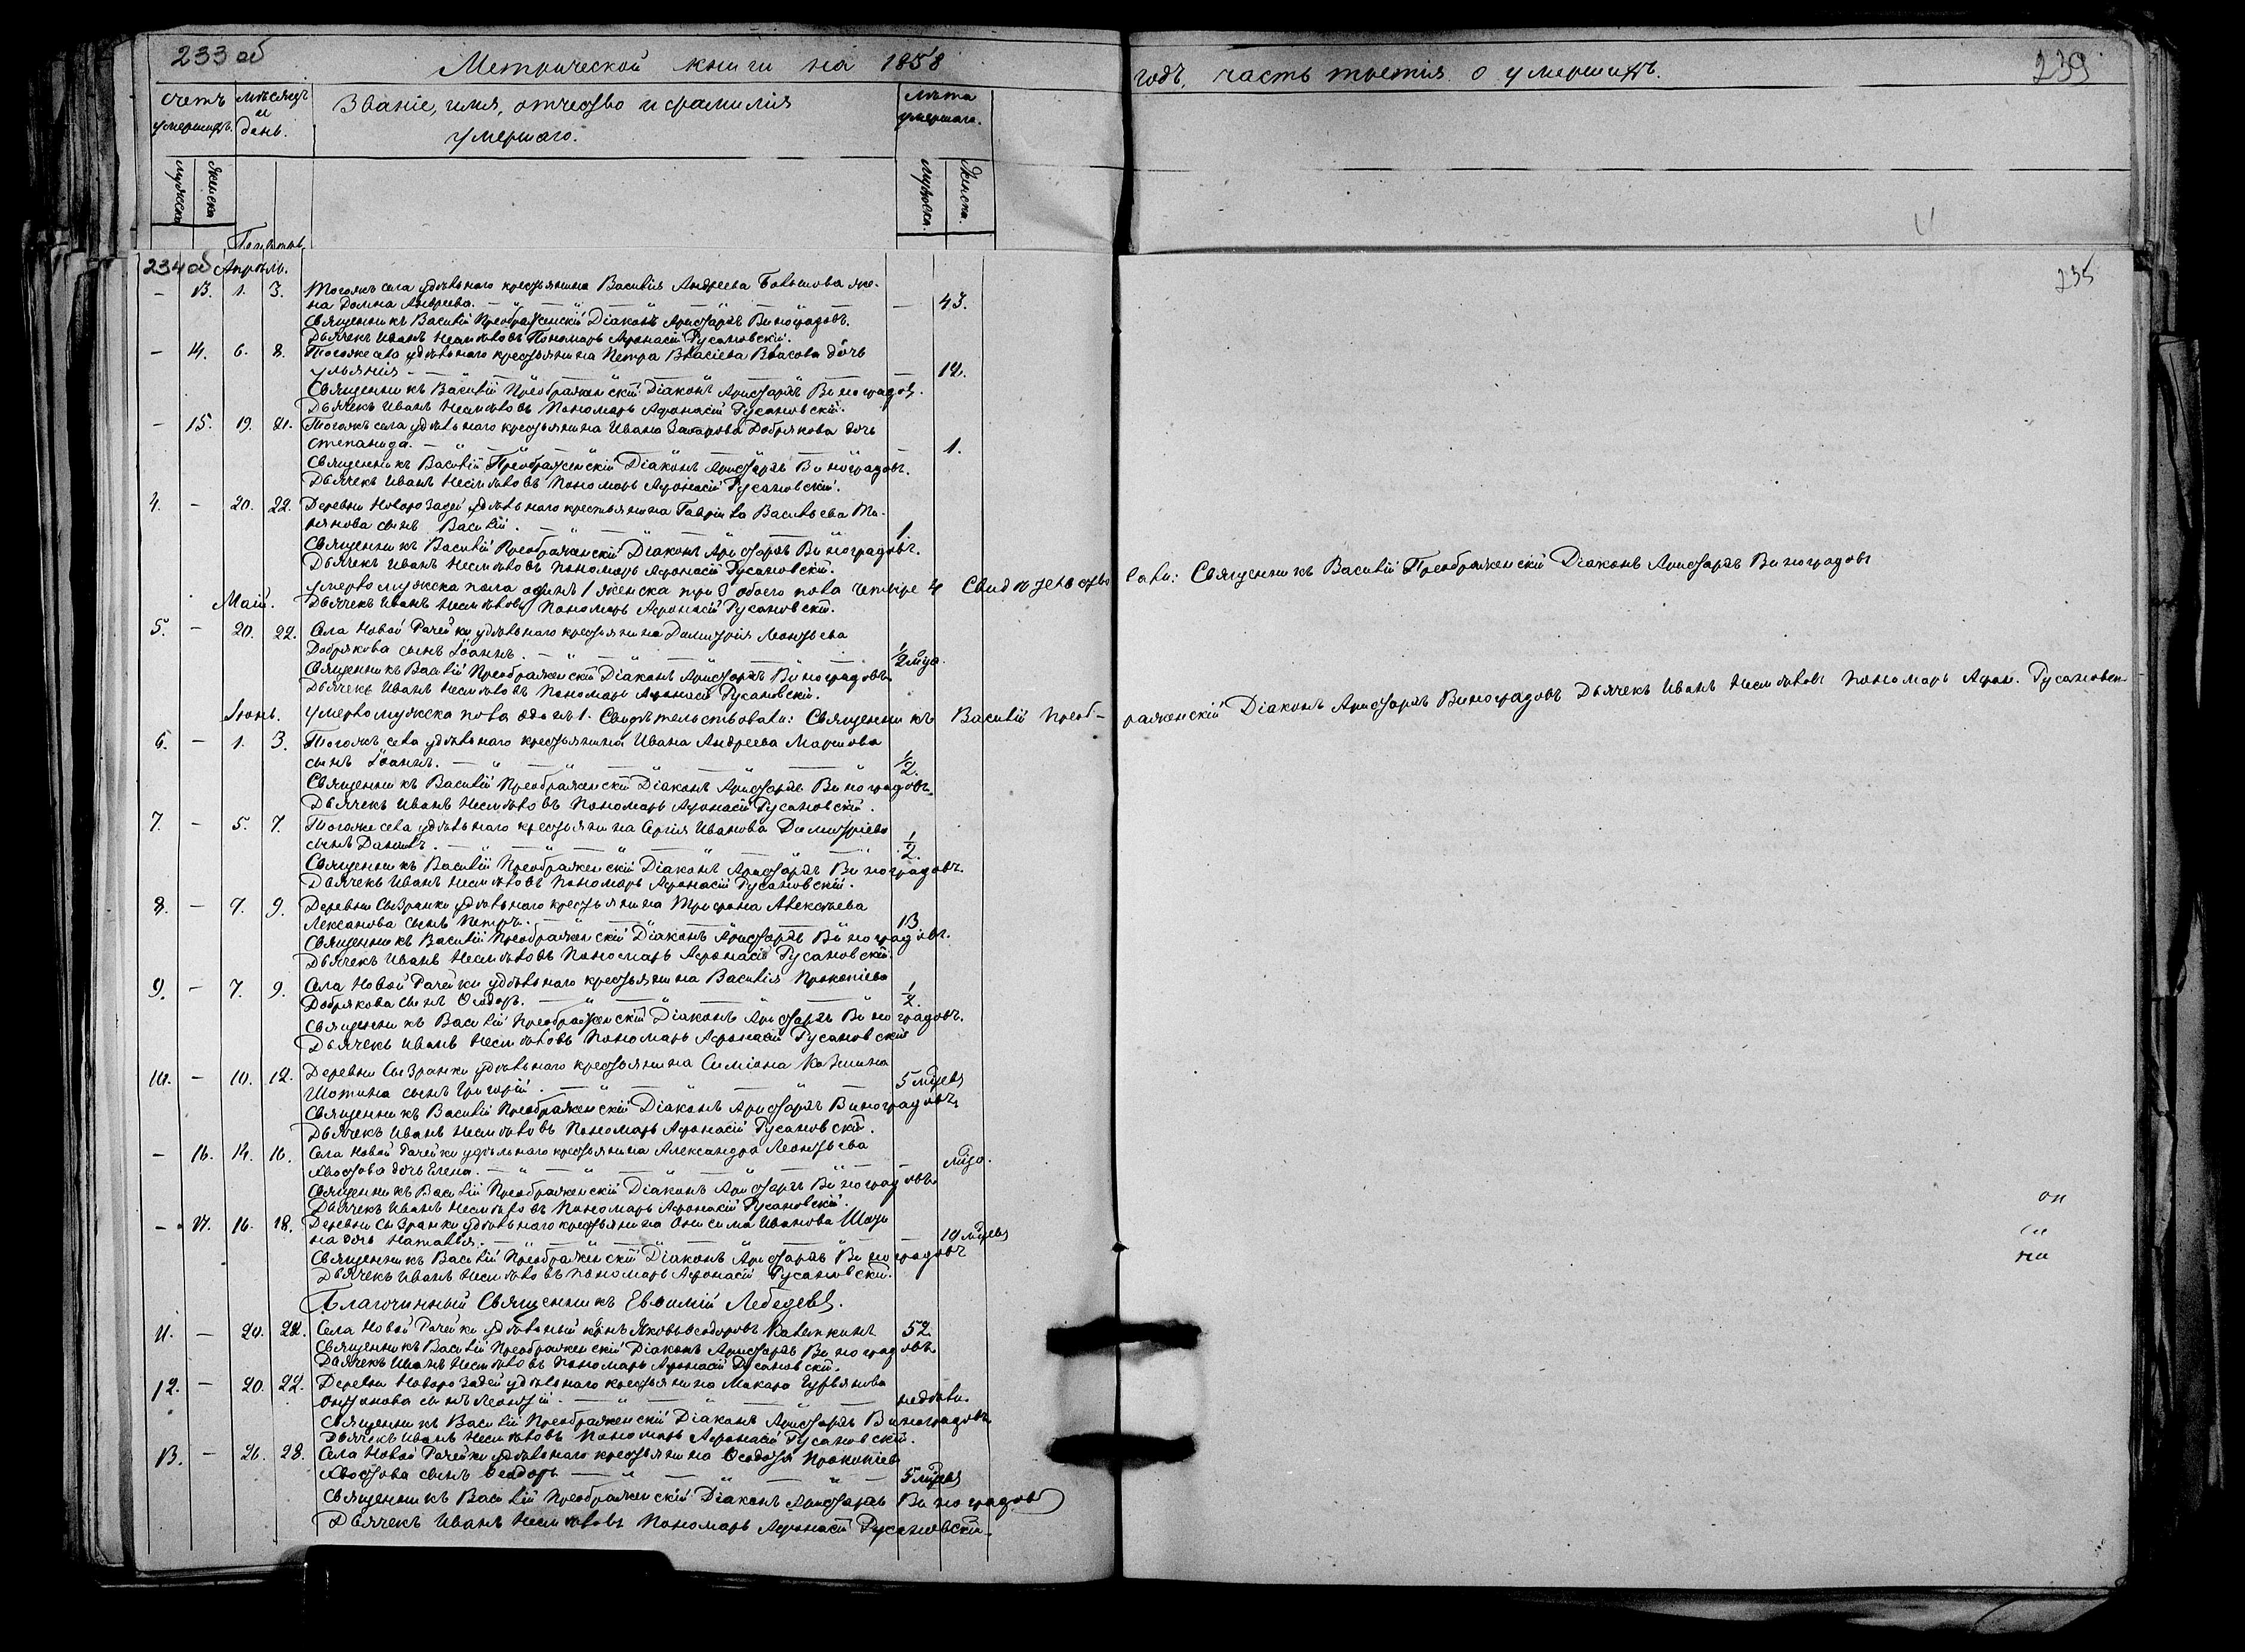 233 об
Метрической книги на 1858
годъ, часть третiя о умершихъ.
239
счетъ умершихъ.
мѣсяцъ и день.
Званiе, имя, отчество и фамилiя
умершаго.
Лѣта умершаго.
мужеска
женска
мужеска.
женска.
234 об Апрѣль.
235
– 13. 1. 3. Тогожъ села удѣльнаго крестьянина Василiя Андреева же-
на Домна Андреева. – 43.
Священникъ Василiй Преображенскiй Дiаконъ Аристархъ Виноградовъ.
Дьячекъ Иванъ Несмѣловъ Пономарь Афонасiй Русановскiй.
– 14. 6. 8. Тогоже села удѣльнаго крестьянина Петра Власiева Власова дочь
Ульянiя – 12.
Священникъ Василiй Преображенскiй Дiаконъ Аристархъ Виноградов.
Дьячекъ Иванъ Несмѣловъ Пономарь Афонасiй Русановскiй.
– 15. 19. 21. Тогожъ села удѣльнаго крестьянина Ивана Захарова Добрякова дочь
Степанида. – 1.
Священникъ Василiй Преображенскiй Дiаконъ Аристархъ Виноградовъ.
Дьячекъ Иванъ Несмѣловъ Пономарь Афонасiй Русановскiй.
4. – 20. 22. Деревни удѣльнаго крестьянина Гаврiила Васильева
сынъ Василiй. 1
Священникъ Василiй Преображенскiй Дiаконъ Аристархъ Виноградовъ.
Дьячекъ Иванъ Несмѣловъ Пономарь Афонасiй Русановскiй.
Умерло мужеска пола одинъ 1 женска три 3 обоего пола четыре 4 Свидѣтельство вали: Священникъ Василiй Преображенскiй Дiаконъ Аристархъ Виноградовъ
Маiй. Дьячекъ Иванъ Несмѣловъ Пономарь Афонасiй Русановскiй.
5. – 20. 22. Села Новой Рачейки удѣльнаго крестьянина Димитрiя Леонтьева
Добрякова сынъ Iоаннъ. 1/2 мца.
Священникъ Василiй Преображенскiй Дiаконъ Аристархъ Виноградовъ
Дьячекъ Иванъ Несмѣловъ Пономарь Афонасiй Русановскiй.
Iюнь. Умерло мужска пола одинъ 1. Свидѣтельствовали: Священникъ Василiй Преоб- раженскiй Дiаконъ Аристархъ Виноградовъ Дьячекъ Иванъ Несмѣловъ Пономарь Афон. Русановскiй
6. – 1. 3. Тогожъ села удѣльнаго крестьянина Ивана Андреева
сынъ Iоаннъ. 1/2.
Священникъ Василiй Преображенскiй Дiаконъ Аристархъ Виноградовъ.
Дьячекъ Иванъ Несмѣловъ Пономарь Афонасiй Русановскiй.
7. – 5. 7. Тогоже села удѣльнаго крестьянина Сергiя Иванова Димитрiева
сынъ Данiилъ. 1/2.
Священникъ Василiй Преображенскiй Дiаконъ Аристархъ Виноградовъ.
Дьячекъ Иванъ Несмѣловъ Пономарь Афонасiй Русановскiй.
8. – 7. 9. Деревни Сызранки удѣльнаго крестьянина Трифона Алексѣева
Лексанова сынъ Петръ. 13
Священникъ Василiй Преображенскiй Дiаконъ Аристархъ Виноградовъ.
Дьячекъ Иванъ Несмѣловъ Пономарь Афонасiй Русановскiй.
9. – 7. 9. Села Новой Рачейки удѣльнаго крестьянина Василiя Прокопiева
Добрякова сынъ Ѳеодоръ. 1/2.
Священникъ Василiй Преображенскiй Дiаконъ Аристархъ Виноградовъ.
Дьячекъ Иванъ Несмѣловъ Пономарь Афонасiй Русановскiй
10. – 10. 12. Деревни Сызранки удѣльнаго крестьянина Симiона
сынъ Григорiй. 5 мцевъ
Священникъ Василiй Преображенскiй Дiаконъ Аристархъ Виноградовъ
Дьячекъ Иванъ Несмѣловъ Пономарь Афонасiй Русановскiй.
– 16. 14. 16. Села Новой Рачейки удѣльнаго крестьянина Александра Леонтьева
Хвостова дочь Елена. – мца.
Священникъ Василiй Преображенскiй Дiаконъ Аристархъ Виноградовъ
Дьячекъ Иванъ Несмѣловъ Пономарь Афонасiй Русановскiй.
– 17. 16. 18. Деревни Сызранки удѣльнаго крестьянина Онисима Иванова
на дочь Наталья. – 10 мцевъ
Священникъ Василiй Преображенскiй Дiаконъ Аристархъ Виноградовъ
Дьячекъ Иванъ Несмѣловъ Пономарь Афонасiй Русановскiй.
Благочинный Священникъ Евѳимiй Лебедевъ.
11. – 20. 22. Села Новой Рачейки удѣльный крнъ Яковъ Ѳеодоровъ 52
Священникъ Василiй Преображенскiй Дiаконъ Аристархъ Виноградовъ
Дьячекъ Иванъ Несмѣловъ Пономарь Афонасiй Русановскiй.
12. – 20. 22. Деревни удѣльнаго крестьянина Макара Гурьянова
сынъ Леонтiй. недѣли.
Священникъ Василiй Преображенскiй Дiаконъ Аристархъ Виноградовъ
Дьячекъ Иванъ Несмѣловъ Пономарь Афонасiй Русановскiй.
13. – 26. 28. Села Новой Рачейки удѣльнаго крестьянина Прокопiева
Хвостова сынъ Ѳеодоръ 5 мцевъ
Священникъ Василiй Преображенскiй Дiаконъ Аристархъ Виноградовъ
Дьячекъ Иванъ Несмѣловъ Пономарь Афонасiй Русановскiй.